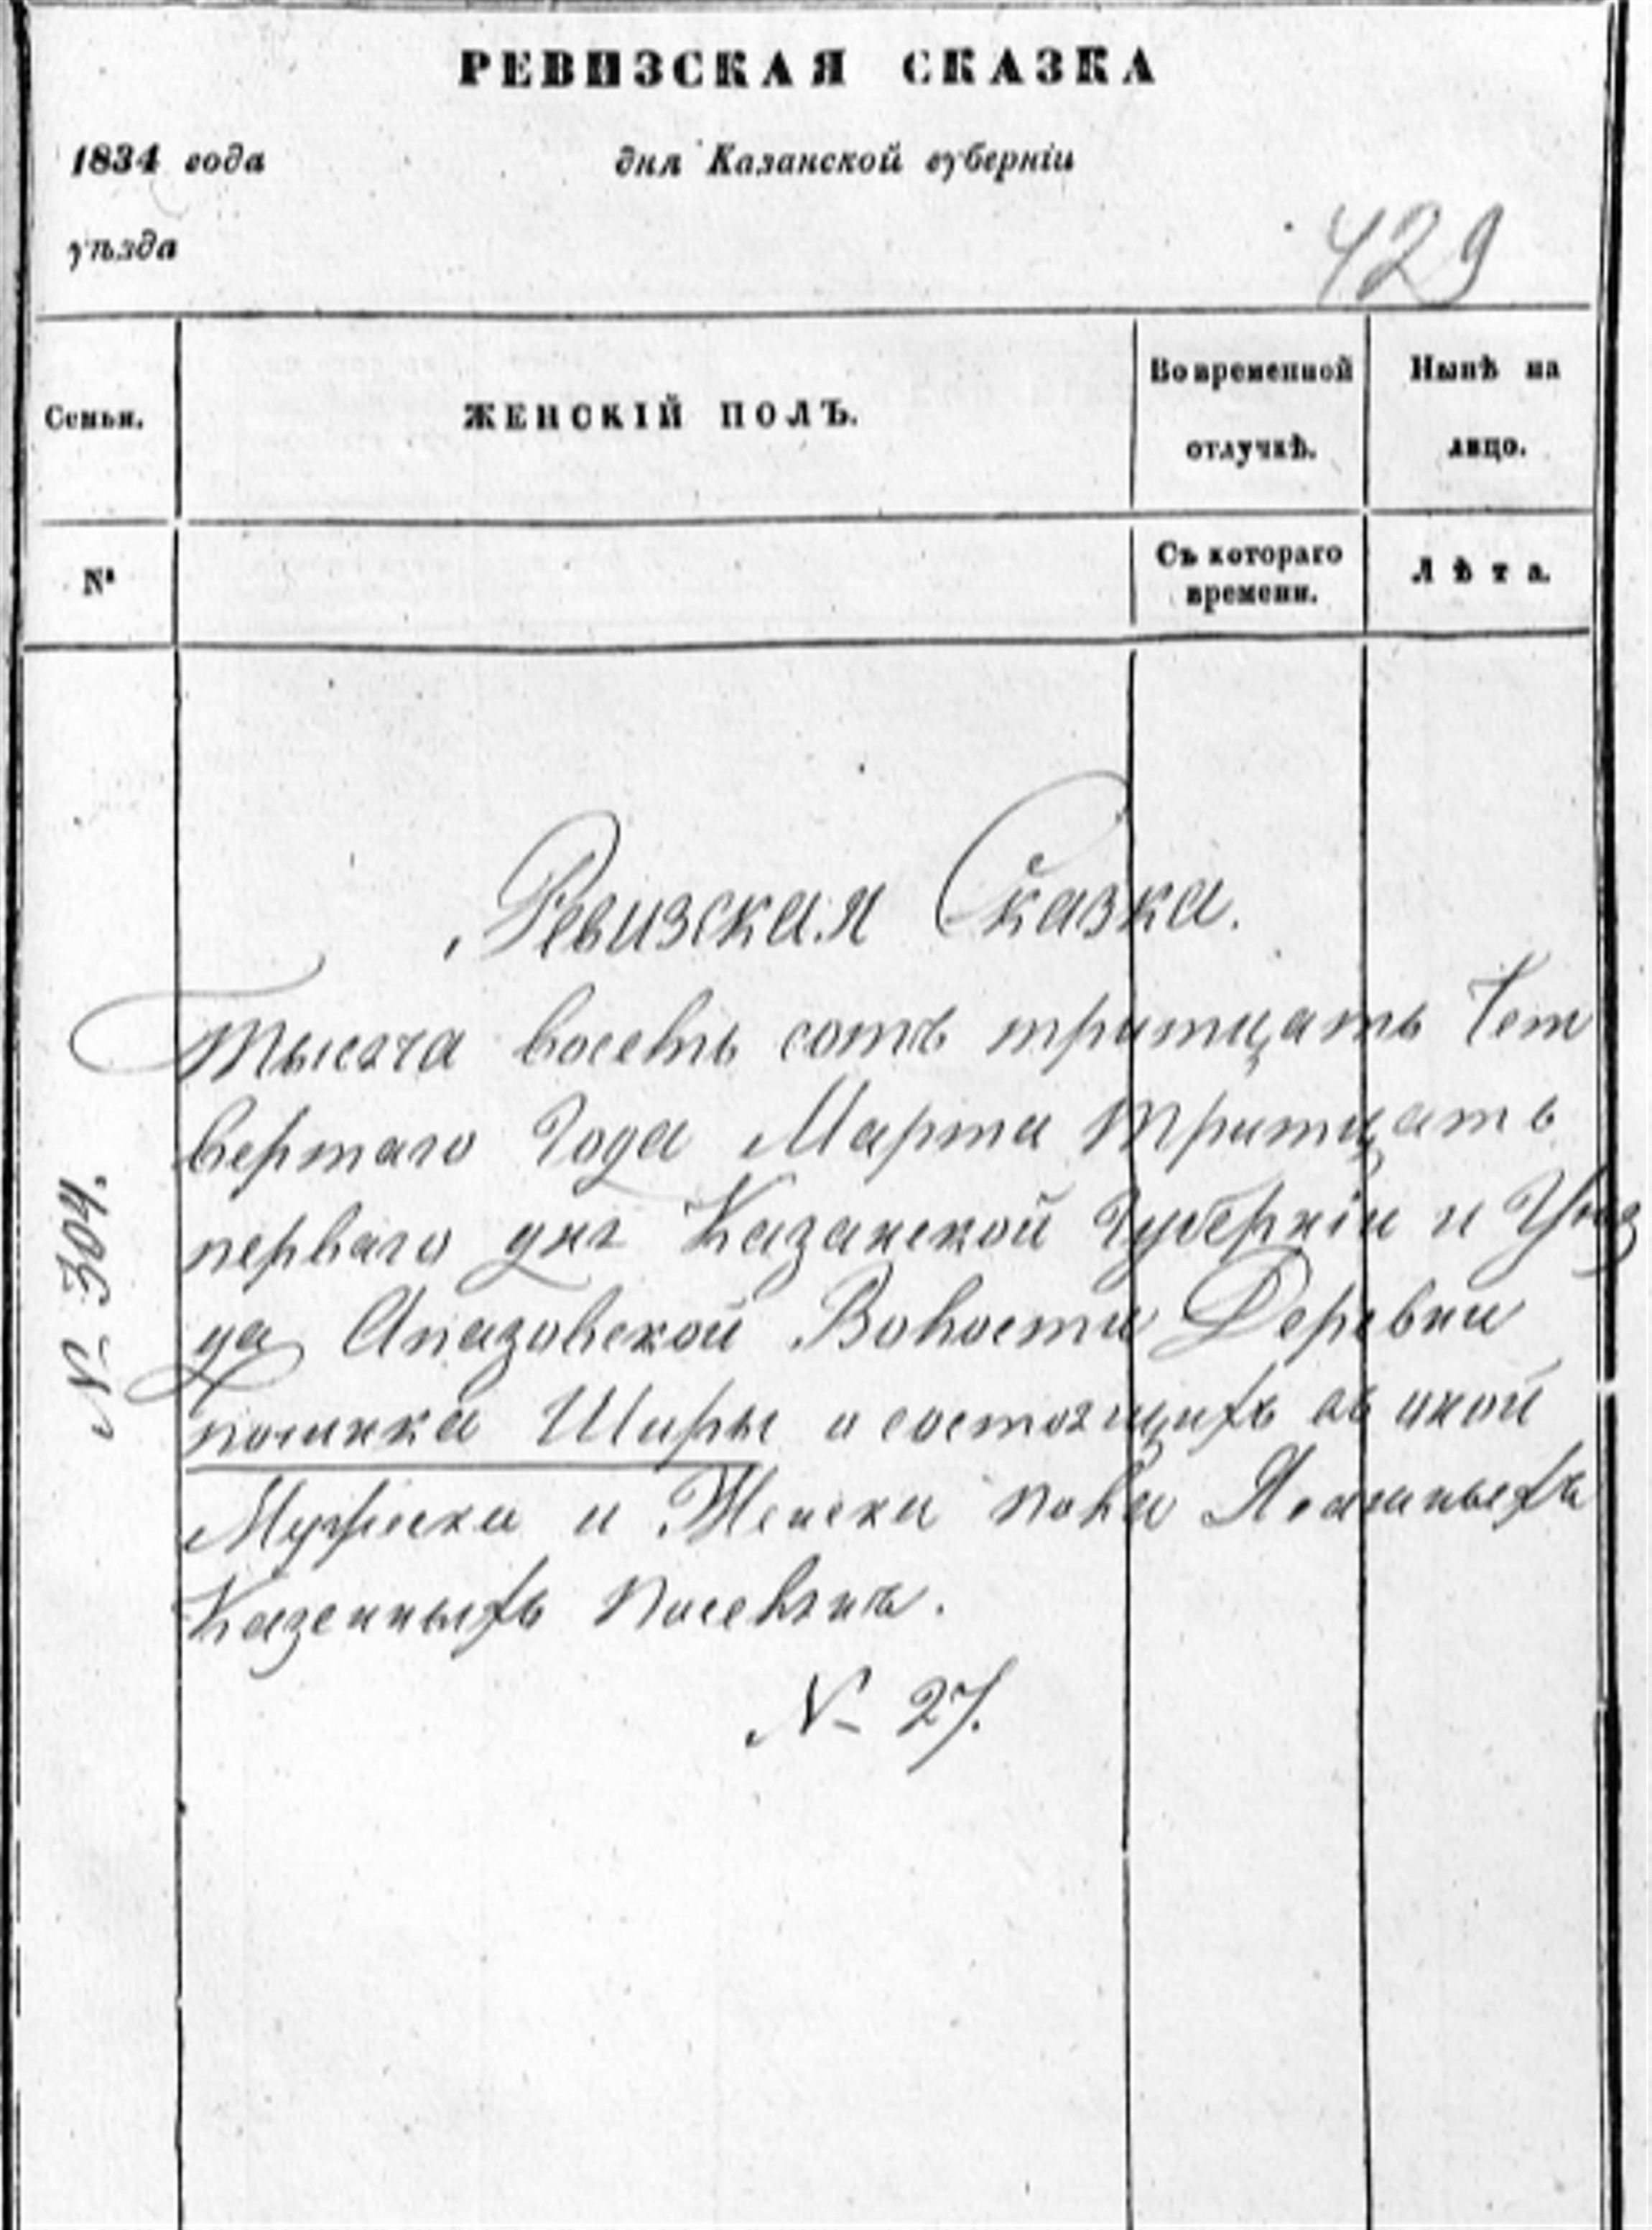 РЕВИЗСКАЯ СКАЗКА
1834 года дня Казанской губерніи
уѣзда
429
Семьи. ЖЕНСКІЙ ПОЛЪ. Во временной отлучкѣ. Нынѣ на лицо.
№ Съ котораго времени. Лѣта.
Ревизская Сказка.
Тысяча восемь сотъ тритцать Чет
вертаго Года Марта тритцать
перваго дня Казанской Губерніи и Уѣз
да Апазовской Волости Деревни
починка Ширы о состоящихъ въ иной
Мужеска и Женска пола Ясашныхъ
Казенныхъ
№ 27.
№ 304.